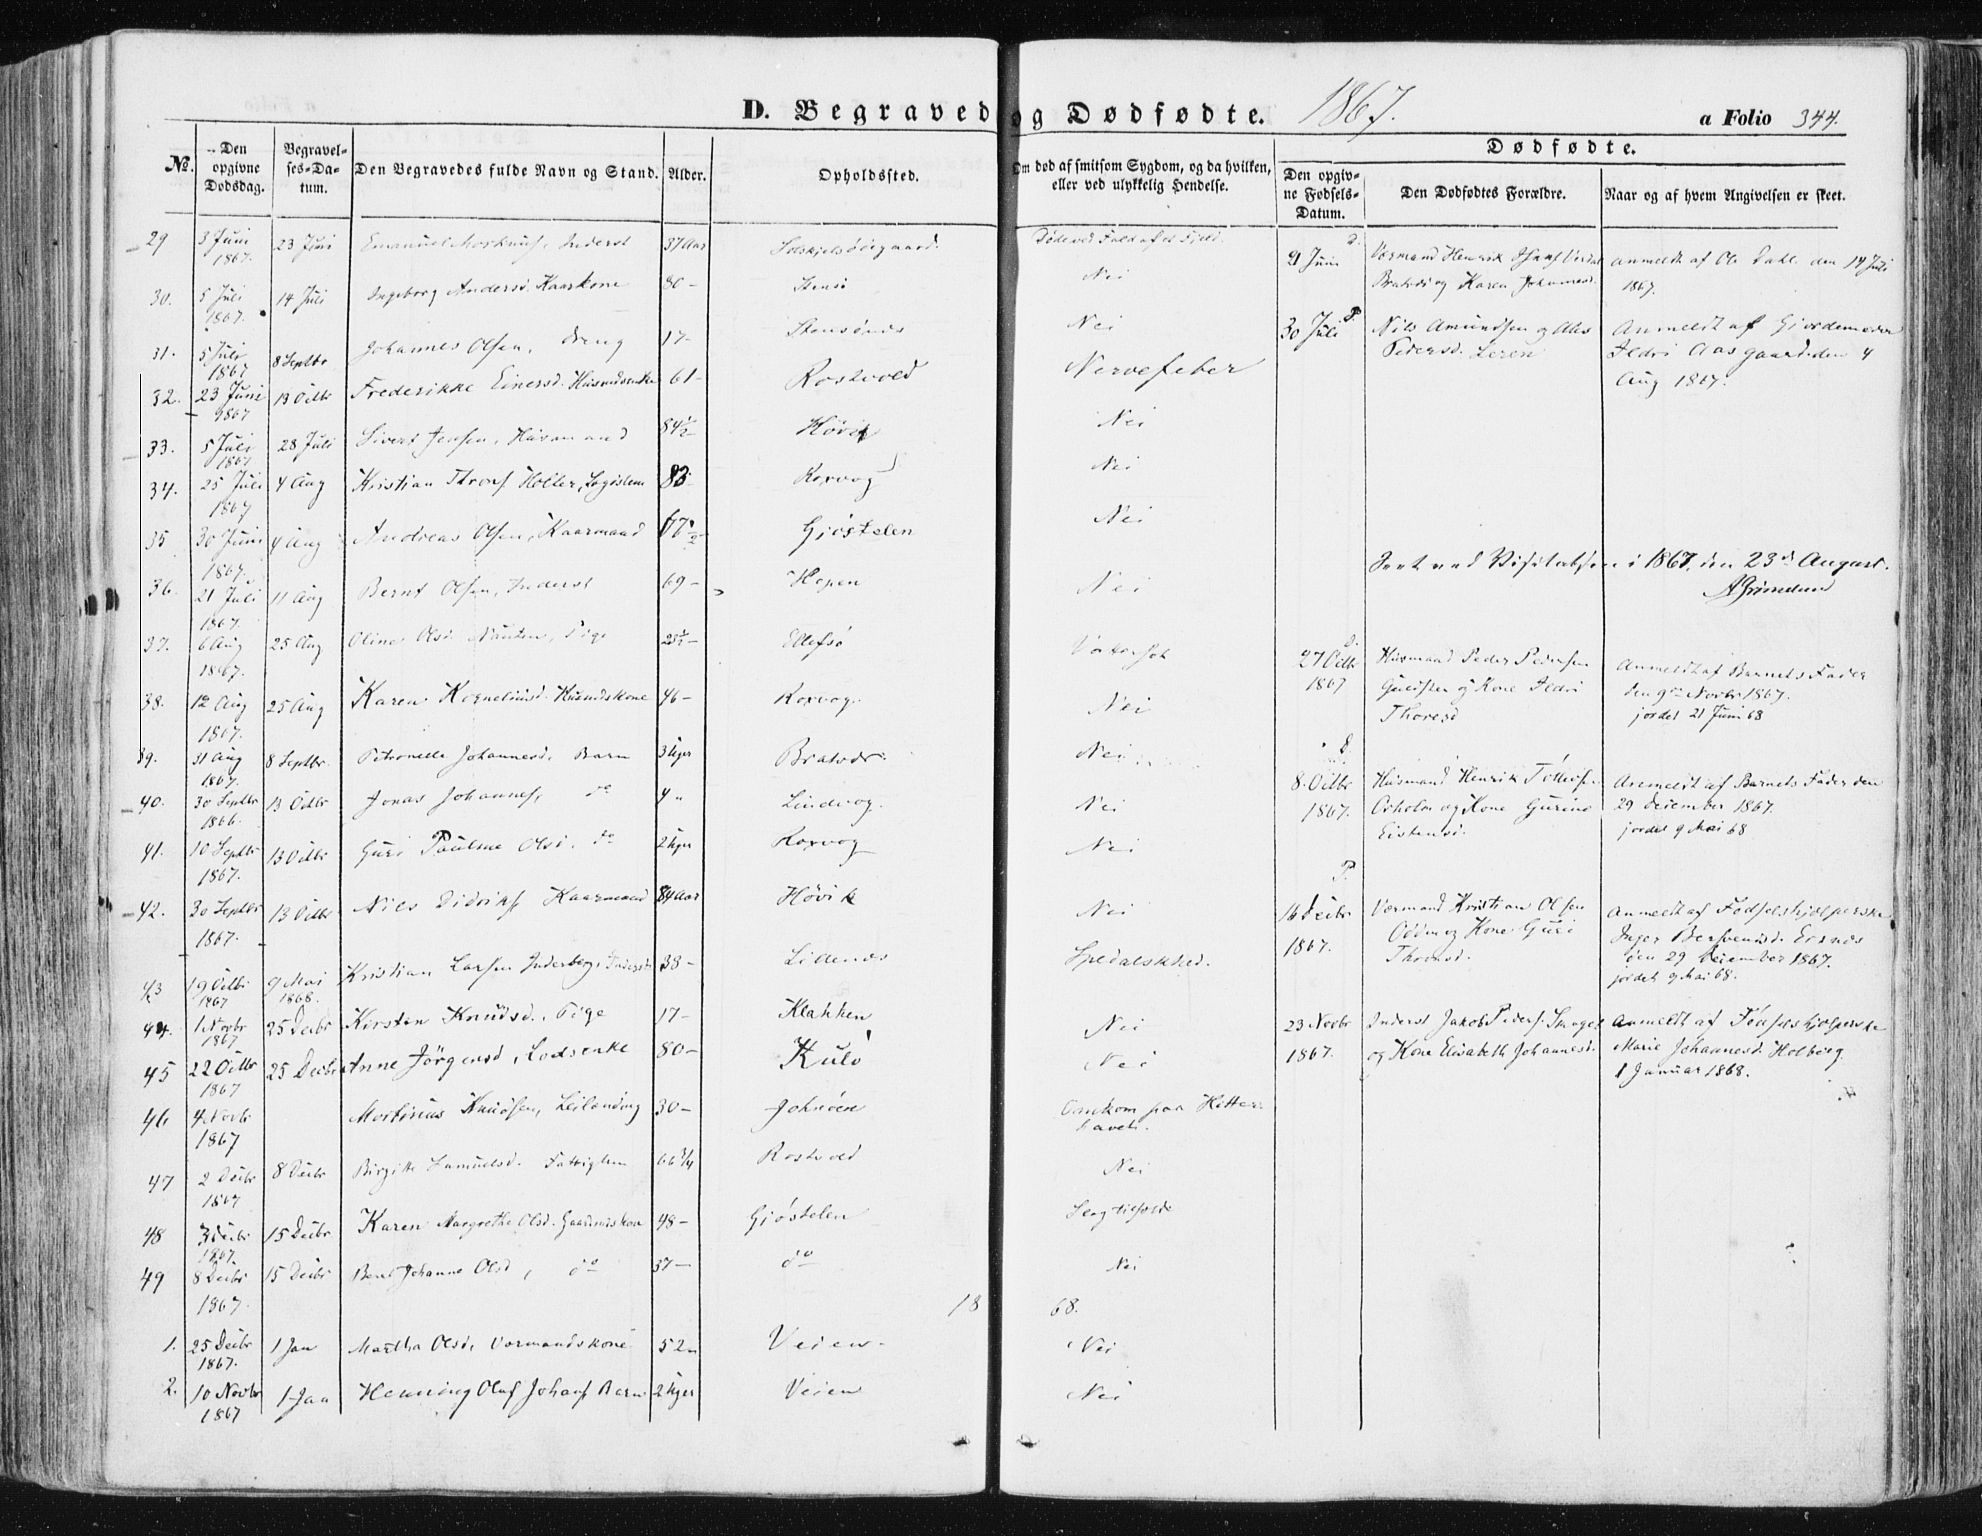 D. Begravede og Dødfødte. 1867. a Folio 344.
No.
Den opgivne Dødsdag.
Begravelses-Datum.
Den Begravedes fulde Navn og Stand.
Alder.
Opholdssted.
Om død af smitsom Sygdom, og da hvilken, eller ved ulykkelig Hendelse.
Dødfødte.
Den opgivne Fødsels-Datum.
Den Dødfødtes Forældre.
Naar og af hvem Angivelsen er skeet.
29 3 Juni 1867. 23 Juni Emanuel Inderst 37 Aar
30. 5 Juli 1867. 14 Juli Ingeborg Andersd. Kaarkone 80 - Stensö Nei
31. 5 Juli 1867 8 Septbr Johannes Olsen, Dreng 17 - Stensönes Nei
32. 23 Juni 1867 13 Octbr Frederikke Einersd. Husmdsenke 61 - Rostvold Nervefeber
33. 5 Juli 1867 28 Juli Sivert Jensen, Husmand 84½ Hövik Nei
34. 25 Juli 1867 4 Aug Kristian Holter, Legdslem 83 Korsvog Nei
35 30 Juni 1867. 4 Aug Andreas Olsen, Kaarmand 67½ Gjöstelen Nei
36. 21 Juli 1867. 11 Aug Bernt Olsen, Inderst 69 - Hopen Nei
37. 6 Aug 1867. 25 Aug Oline Olsd. Pige Ellefsö Vattersot
38. 12 Aug 1867. 25 Aug Karen Korneliusd. Husmdskone 46 - Korsvog. Nei
39. 31 Aug 1867. 8 Septbr. Petronelle Johannesd. Barn 3 Uger Bratvær Nei
40. 30 Septbr 1866. 13 Octbr Jonas Johannes, do 4 " Lindvog. Nei
41. 10 Septbr 1867. 13 Octbr Guri Pauline Olsd. do 2 Uger Korsvog Nei
42. 30 Septbr 1867. 13 Octbr Niels Didriks Kaarmand 84 Aar Hövik Nei
43 19 Octbr 1867 9 Mai 1868. Kristian Larsen Inderberg, Inderst 38 - Lillenes Spedalskhed.
44. 1 Novbr 1867 25 Decbr Kirsten Knudsd., Pige 17 - Klakken Nei
45 22 Octbr 1867 25 Decbr Anne Jörgensd, Lodsenke 80 - Kulö Nei
46 4 Novbr 1867 Mortinus Knudsen, Leilænding 30 - Johnöen Omkom paa Hitterhavet.
47 2 Decbr 1867 8 Decbr Birgitte Samuelsd. Fattiglem 66¾ Rostvold Nei
48 3 Decbr 1867. 15 Decbr Karen Margrethe Olsd. Gaardmdskone 48 - Gjöstelen
49 8 Decbr 1867. 15 Decbr Johanne Olsd, do 37 - do Nei
1868.
1. 25 Decbr 1867. 1 Jan Martha Olsd, Vormandskone 52 " Veien - Nei
2. 10 Novbr 1867 1 Jan Henning Oluf Johans Barn 2 Uger Veien Nei
D. 21 Juni Vormand Henrik Bratvær og Karen Johannesd. Anmeldt af Ole Dahl den 14 Juli 1867.
P. 30 Juli Nils Amundsen og Pedersd. Leren Anmeldt af Gjordemoder Ildri Aasgaard den 4 Aug 1867.
Seet ved Visitatsen i 1867, den 23de August.
A Grimelund
D. 27 Octbr 1867 Husmand Peder Pedersen og Kone Ildri Thoresd Anmeldt af Barnets Fader den 9de Novbr 1867. jordet 21 Juni 68
D. 8. Octbr 1867. Husmand Henrik og Kone Gurine Eistensd. Anmeldt af Barnets Fader den 29 December 1867. jordet 9 Mai 68
P. 16 Decbr 1867. Vormand Kristian Olsen Odden og Kone Guri Thomsd. Anmeldt af Fødselshjelperske Inger den 29 December 1867. jordet 9 Mai 68.
23 Novbr 1867. Inderst Jakob Peders. og Kone Elisabeth Johannesd. Anmeldt af Fødselshjelperske Marie Johannesd. Holberg 1 Januar 1868.